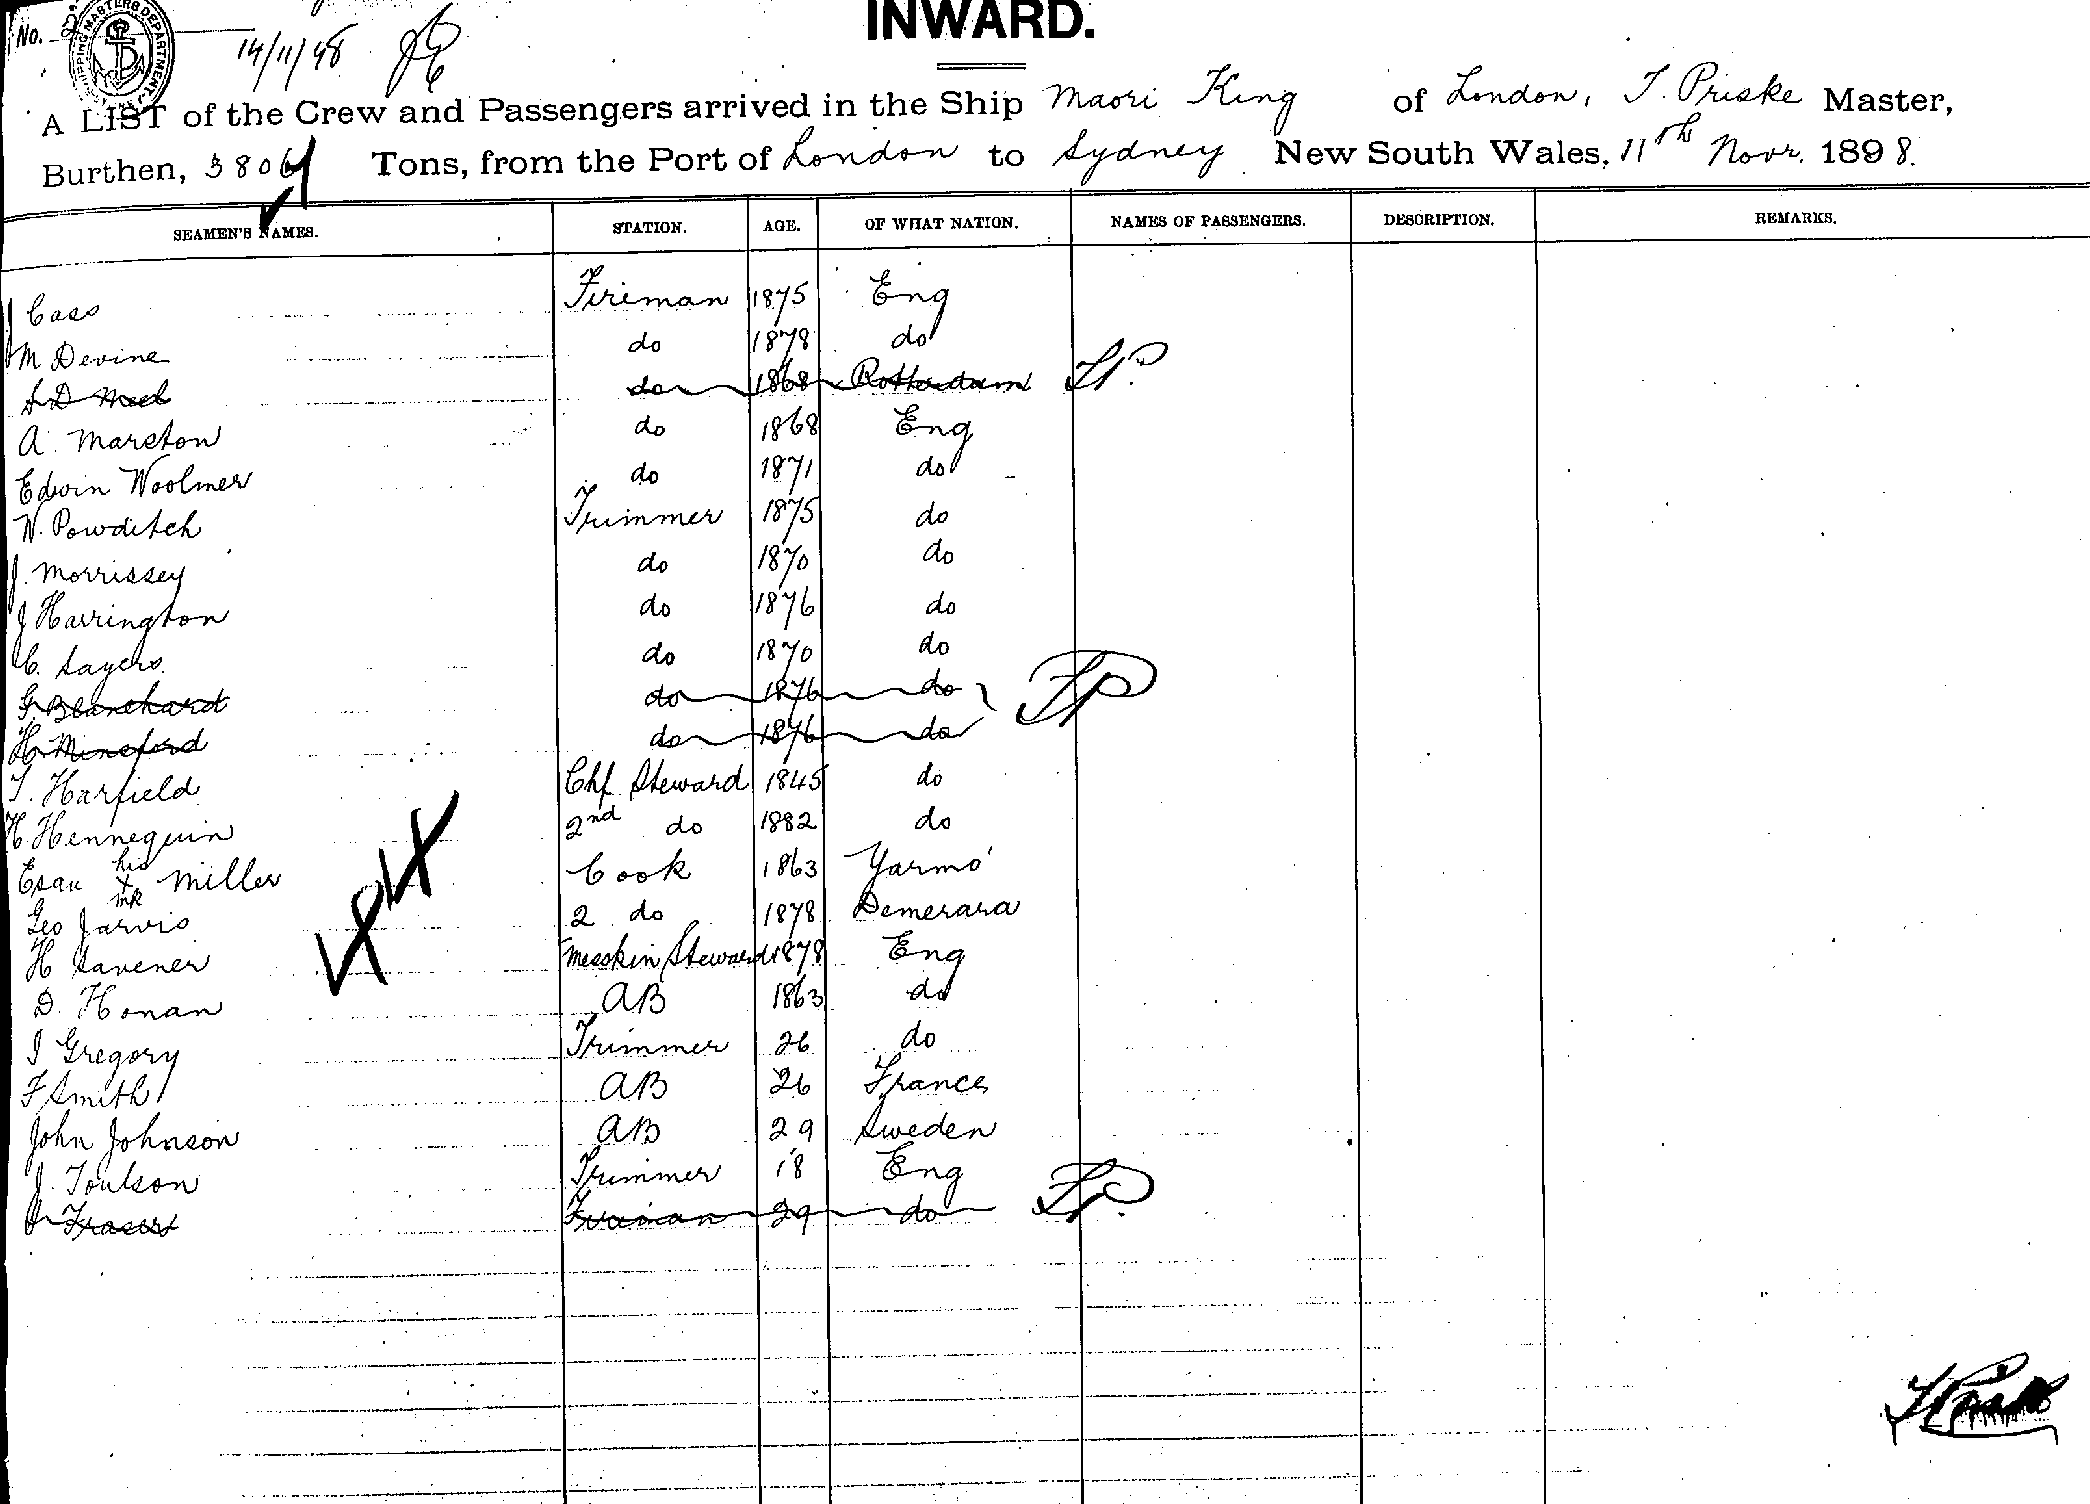 INWARD.
No.
SHIPPING MASTERS DEPARTMENT
14/11/98
A LIST of the Crew and Passengers arrived in the Ship Maori King of London, T. Priske Master,
Burthen, 3806 Tons, from the Port of London to Sydney New South Wales, 11th Novr. 1898.
SEAMEN'S NAMES. STATION. AGE. OF WHAT NATION. NAMES OF PASSENGERS. DESCRIPTION. REMARKS.
J Cass Fireman 1875 Eng
M Devine do 1878 do
do 1868 Rotterdam TP.
A. Marston do 1868 Eng
Edwin Woolmer do 1871 do
W. Powditch Trimmer 1875 do
J. Morrissey do 1870 do
J Harrington do 1876 do
C. Sayers. do 1870 do
G Blanchard do 1876 do TP
H. Mineford do 1876 do
T. Harfield Chf Steward 1845 do
H Hennequin 2nd do 1882 do
Esau his x mk Miller Cook 1863 Yarmo'
Geo Jarvis 2 do 1878 Demerara
H Savener Messkin Steward 1878 Eng
D. Honan AB 1863 do
I Gregory Trimmer 26 do
F Smith AB 26 France
John Johnson AB 29 Sweden
J. Toulson Trimmer 18 Eng
J Fraser Fireman 29 do TP.
T Priske